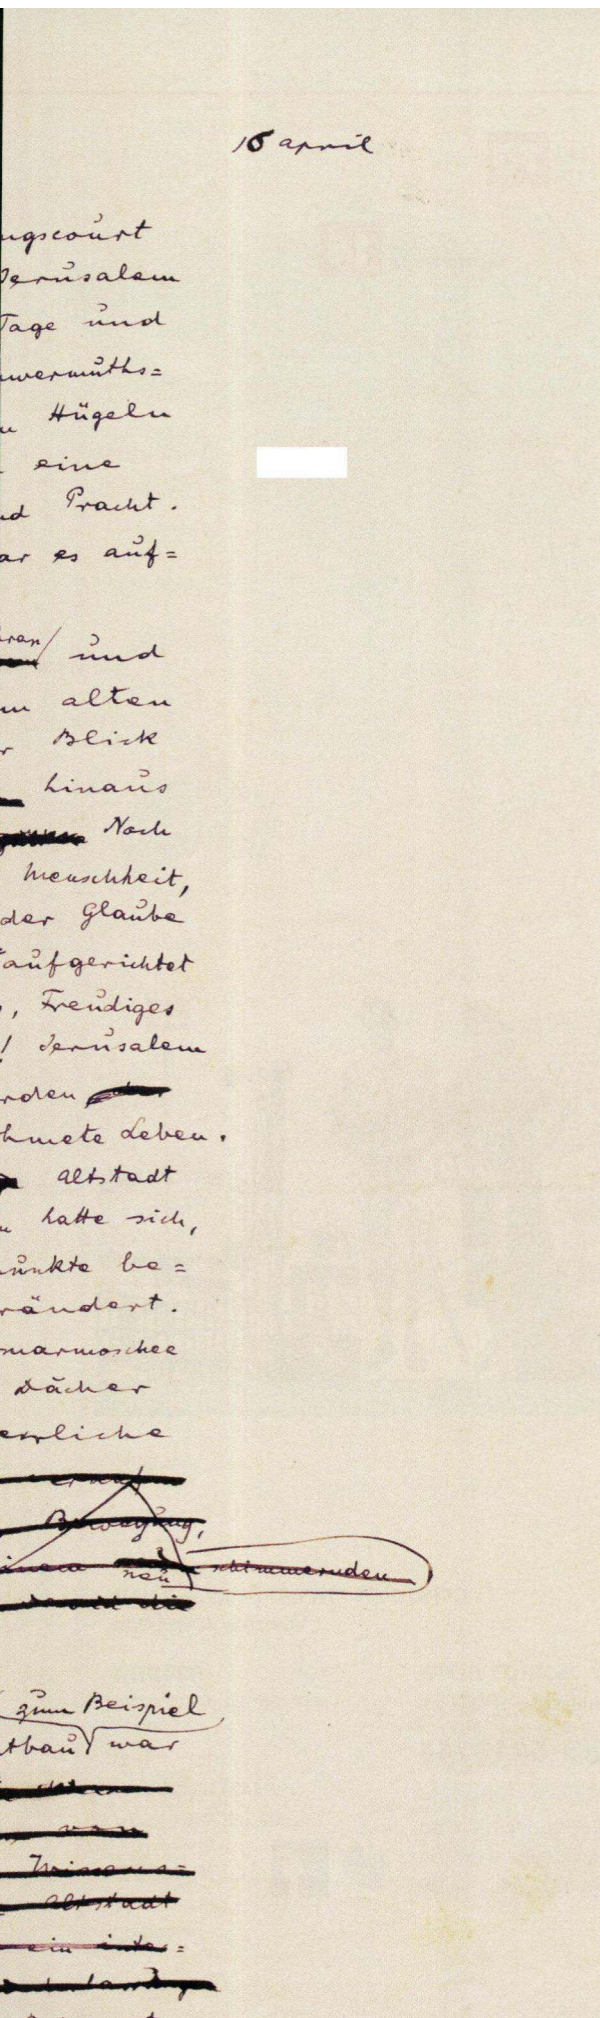 16 april
ngscourt
Jerusalem
Tage und
wermuths=
n Hügeln
eine
nd Pracht.
ar es auf=
ran
und
m alten
r Blick
hinaus
Noch
Menschheit,
der Glaube
aufgerichtet
, Freudiges
! Jerusalem
rden
hmete Leben.
Altstadt
n hatte sich,
unkte be=
rändert.
marmoschee
Dächer
errliche
Bewegung,
inem neu schimmernden
und die
zum Beispiel
tbau war
von
Altstadt
ein inter=